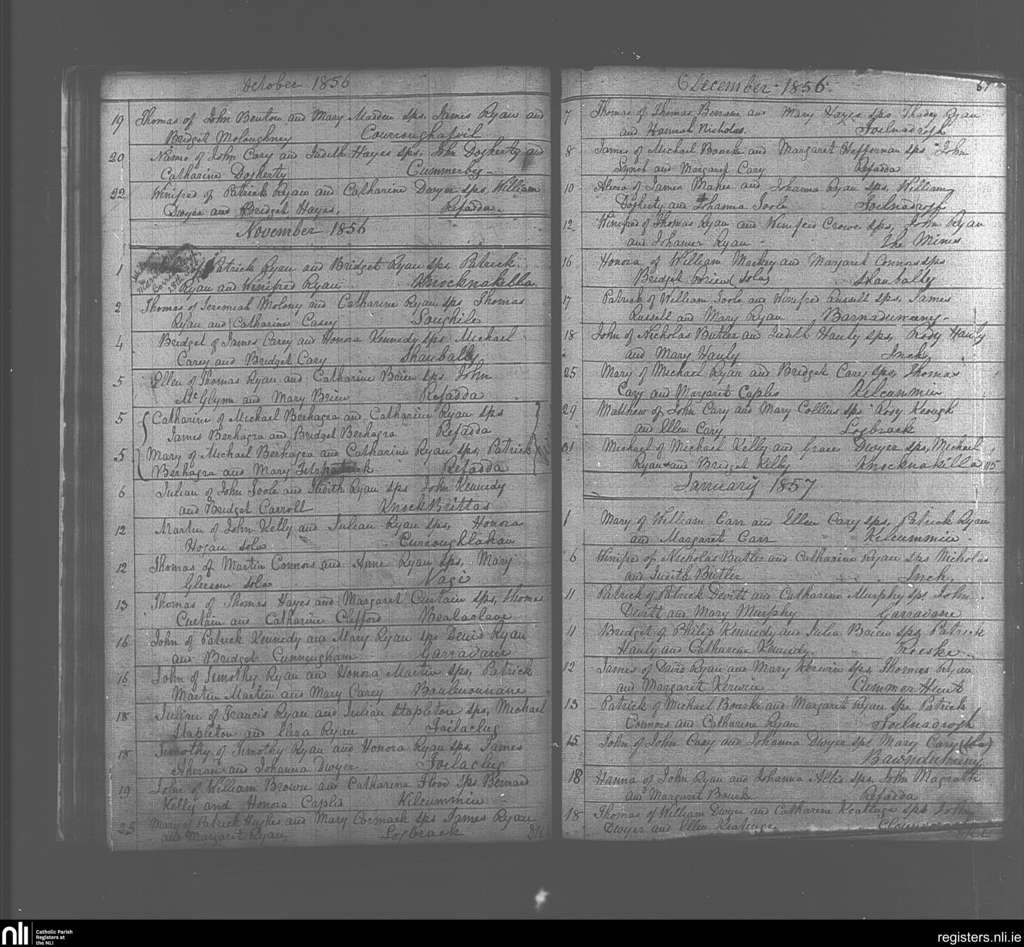 October 1856
19 Thomas of John Benton and Mary Madden sps. James Ryan and
Bridget Moloughney Curroughafoil
20 of John Cary and Judith Hayes sps. John Dogherty and
Catharine Dogherty Cummerby
22 Winifred of Patrick Ryan and Catharine Dwyer sps. William
Dwyer and Bridget Hayes. Refadda.
November 1856
1 Patrick Ryan and Bridget Ryan sps. Patrick
Ryan and Winifred Ryan Knocknakella
2 Thomas of Jeremiah Molony and Catharine Ryan sps Thomas
Ryan and Catharine Casey Loughile
4 Bridget of James Carey and Honora Kennedy sps. Michael
Carey and Bridget Cary Shanbally
5 Ellen of Thomas Ryan and Catharine Brien sps John
McGlynn and Mary Brien Refadda
5 Catharine of Michael Berhagra and Catharine Ryan sps
James Berhagra and Bridget Berhagra Refadda
5 Mary of Michael Berhagra and Catharine Ryan sps, Patrick
Berhagra and Mary Fitzpatrick Refadda
6 Julian of John Toole and Judith Ryan sps John Kennedy
and Bridget Carroll Knock Brittas
12 Martin of John Kelly and Julian Ryan sps, Honora
Hogan solus Curroughlahan
12 Thomas of Martin Connors and Anne Ryan sps, Mary
Gleeson solus
13 Thomas of Thomas Hayes and Margaret Curtain sps, Thomas
Curtain and Catharine Clifford Bealaclave
16 John of Patrick Kennedy and Mary Ryan sps David Ryan
and Bridget Cunningham Garradane
16 John of Timothy Ryan and Honora Martin sps, Patrick
Martin Martin and Mary Carey
18 Julian of Francis Ryan and Julian Stapleton sps, Michael
Stapleton and Clara Ryan Foilaclug
18 Timothy of Timothy Ryan and Honora Ryan sps, James
Aheran and Johanna Dwyer Foilaclug
19 John of William Browne and Catharine sps Bernard
Kelly and Honora Caplis Kilcummin
25 Mary of Patrick Hughes and Mary Cormack sps James Ryan
and Margaret Ryan Logbrack
December 1856. 61
7 Thomas of Thomas and Mary Hayes sps, Thady Ryan
and Hannah Nicholas. Foilnadrogh
8 James of Michael Bourke and Margaret Heffernan sps John
Lynch and Margaret Cary Refadda
10 of James Maher and Johanna Ryan sps, William
Dogherty and Johanna Toole Foilnadrogh
12 Winifred of Thomas Ryan and Winifred Crowe sps, John Ryan
and Ryan The Mines
16 Honora of William Mackey and Margaret Connors sps
Bridget Brien solus Shanbally
17 Patrick of William Toole and Winifred Russell sps, James
Russell and Mary Ryan Barnaduveny
18 John of Nicholas Butler and Judith Hauty sps, Rody Hauty
and Mary Hauty Inch
25 Mary of Michael Ryan and Bridget Cary sps, Thomas
Cary and Margaret Caplis Kilcummin
29 Matthew of John Cary and Mary Collins sps Rody Keough
and Ellen Cary Logbrack
31 Michael of Michael Kelly and Grace Dwyer sps, Michael
Ryan and Bridget Kelly Knocknakilla
January 1857
1 Mary of William Carr and Ellen Cary sps, Patrick Ryan
and Margaret Carr Kilcummin
6 Winifred of Nicholas Butler and Catharine Ryan sps Nicholas
and Judith Butler Inch
11 Patrick of Patrick Devitt and Catharine Murphy sps John
Devitt and Mary Murphy Garradane
11 Bridget of Philip Kennedy and Julia Brien sps, Patrick
Hauty and Catharine Kennedy
12 James of David Ryan and Mary Kerwin sps, Thomas Ryan
and Margaret Kerwin Cummer Hunt
13 Patrick of Michael Bourke and Margaret Ryan sps Patrick
Connors and Catharine Ryan Foilnadrogh
15 John of John Casy and Johanna Dwyer sps Mary Cary (sola)
18 Hanna of John Ryan and Johanna sps, John Magrath
and Margaret Bourk Refadda
18 Thomas of William Dwyer and Catharine Keatinge sps John
Dwyer and Ellen Keatinge
nli Catholic Parish
Registers at
the NLI
registers.nli.ie